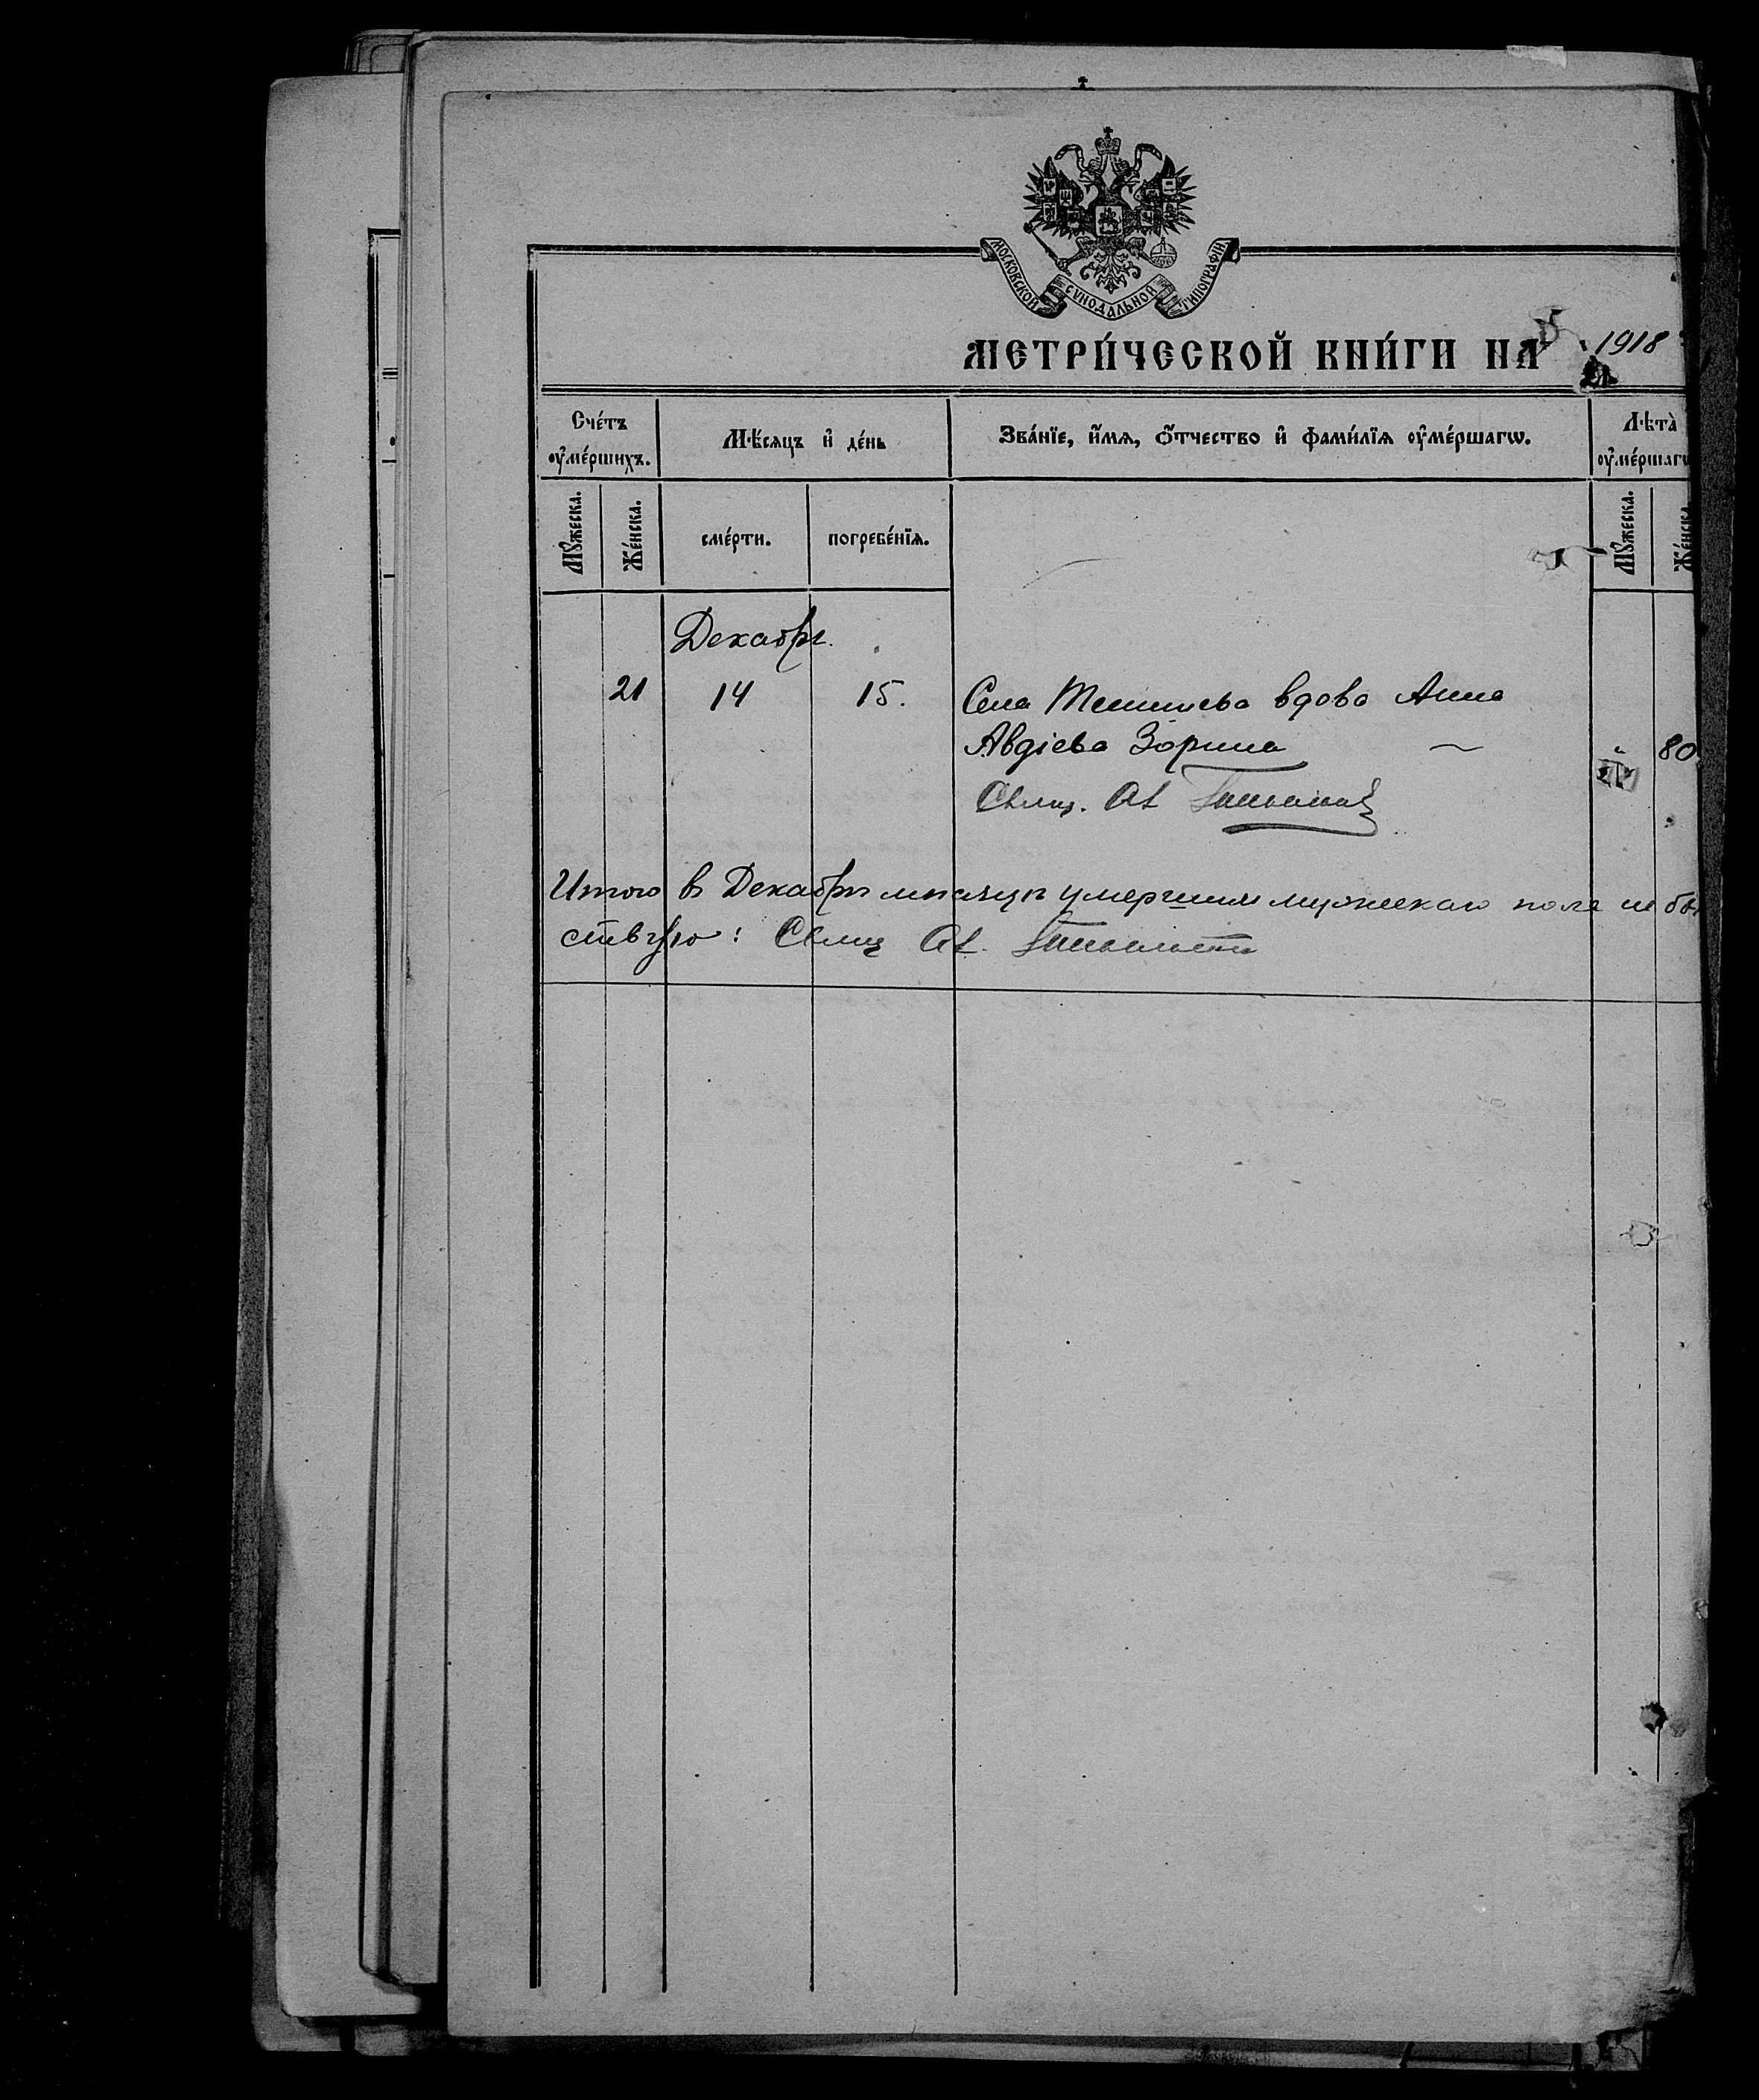 МОСКОВСКОЙ СѴНОДАЛЬНОЙ ТИПОГРАФІИ
МЕТРИ́ЧЕСКОЙ КНИ́ГИ НА 1918
Сче́тъ оу҆ме́ршихъ.
Мѣ́сяцъ и҆ де́нь
Зва́нїе, и҆́мѧ, ѻ҆́тчество и҆ фами́лїѧ оу҆ме́ршагѡ.
Лѣта̀ оу҆ме́ршагѡ
Мꙋ́жеска.
Же́нска.
сме́рти.
погребе́нїѧ.
Мꙋ́жеска.
Же́нска
Декабрь.
21 14 15. Села вдова Анна
Авдіева Зорина 80
Свящ. Ал.
Итого въ Декабрѣ мѣсяцѣ умершихъ мужескаго пола не
Свящ Ал.